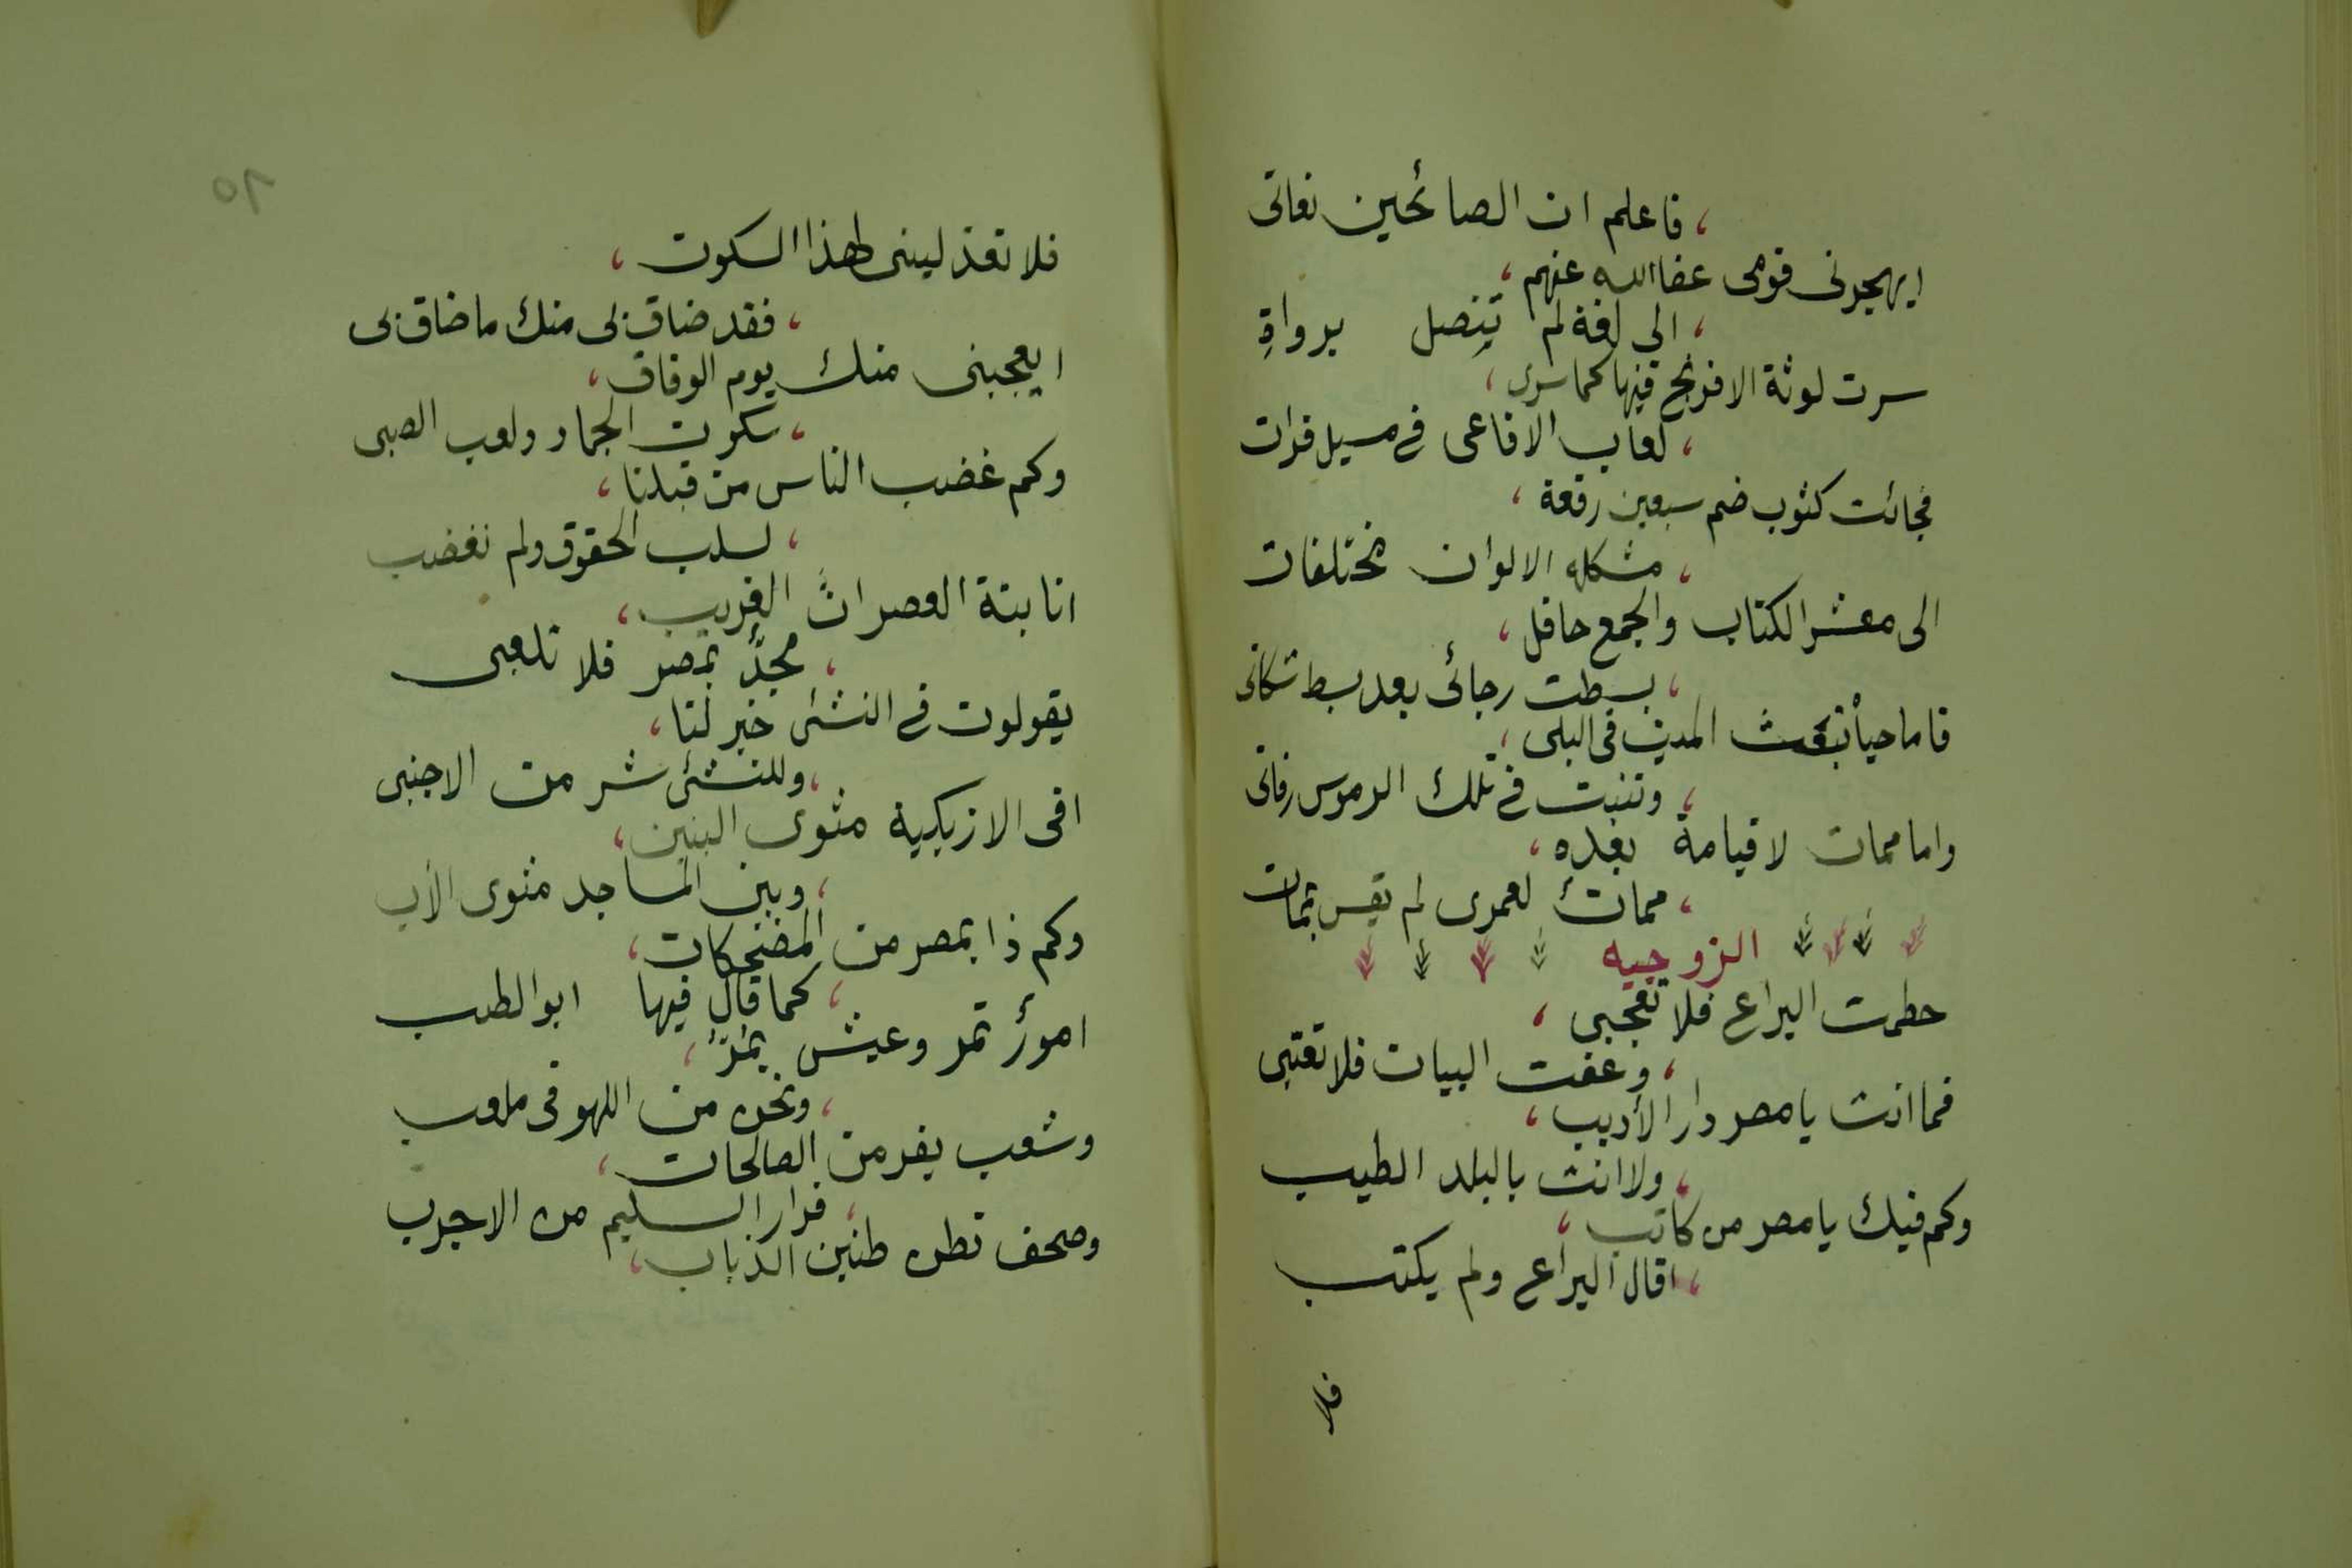 ، فاعلم ان الصائحين نعاتى
ايهجرنى قومى عفا الله عنهم ،
، الى لغة لم تتصل برواةِ
سرت لوثة الافرنج فيها كما سرى ،
، لعاب الافاعى فى مسيل فرات
فجائت كثوب ضم سبعين رقعة ،
، مشكله الالوان مختلفات
الى معشر الكتاب والجمع حافل ،
، بسطت رجائى بعد بسط شكاتى
فاما حياة تبعث الميت فى البلى ،
، وتنبت فى تلك الرموس رفاتى
واما ممات لا قيامة بعده ،
، مماتٌ لعمرى لم يقس بممات
الزوجيه
حطمت اليراع فلا تعجبى ،
، وعفت البيان فلا تعتبى
فما انت يا مصر دار الأديب ،
، ولا انت بالبلد الطيب
وكم فيك يا مصر من كاتب ،
، اقال اليراع ولم يكتب
فلا
٦٥
فلا تعذلينى لهذا السكوت ،
، فقد ضاق بى منك ما ضاق بى
ايعجبنى منك يوم الوفاق ،
، سكوت الجماد ولعب الصبى
وكم غضب الناس من قبلنا ،
، لسلب الحقوق ولم نغضب
انابتة العصر انَّ الغريب ،
، مجدٌّ بمصر فلا تلعبى
يقولون فى النشئ خير لنا ،
، وللنشئ شر من الاجنبى
افى الازبكية مثوى البنين ،
، وبين المساجد مثوى الأب
وكم ذا بمصر من المضحكات ،
، كما قال فيها ابو الطيب
امورٌ تمر وعيش يمرّ ،
، ونحن من اللهو فى ملعب
وشعب يفر من الصالحات ،
، فرار السليم من الاجرب
وصحف تطن طنين الذباب ،